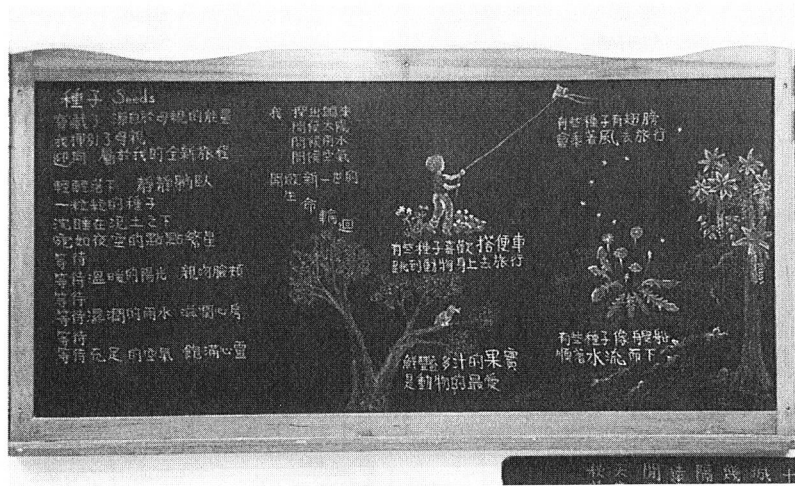 種子 Seeds
貪戲了 源自於母親的能量
我揮別了母親
迎向 屬於我的全新旅程
輕輕落下 靜靜躺臥
一粒粒的種子
沈睡在泥土之下
宛如夜空的點點繁星
等待
等待溫暖的陽光 親吻臉頰
等待
等待濕潤的雨水 滋潤心房
等待
等待充足的空氣 飽滿心靈
我 探出頭來
問候太陽
問候雨水
問候空氣
開啟新一世的
生命輪迴
有些種子喜歡搭便車
跳到動物身上去旅行
鮮豔多汁的果實
是動物的最愛
有些種子有翅膀
會乘著風去旅行
有些種子像帆船
順著水流而下
秋天間遠隔幾城十